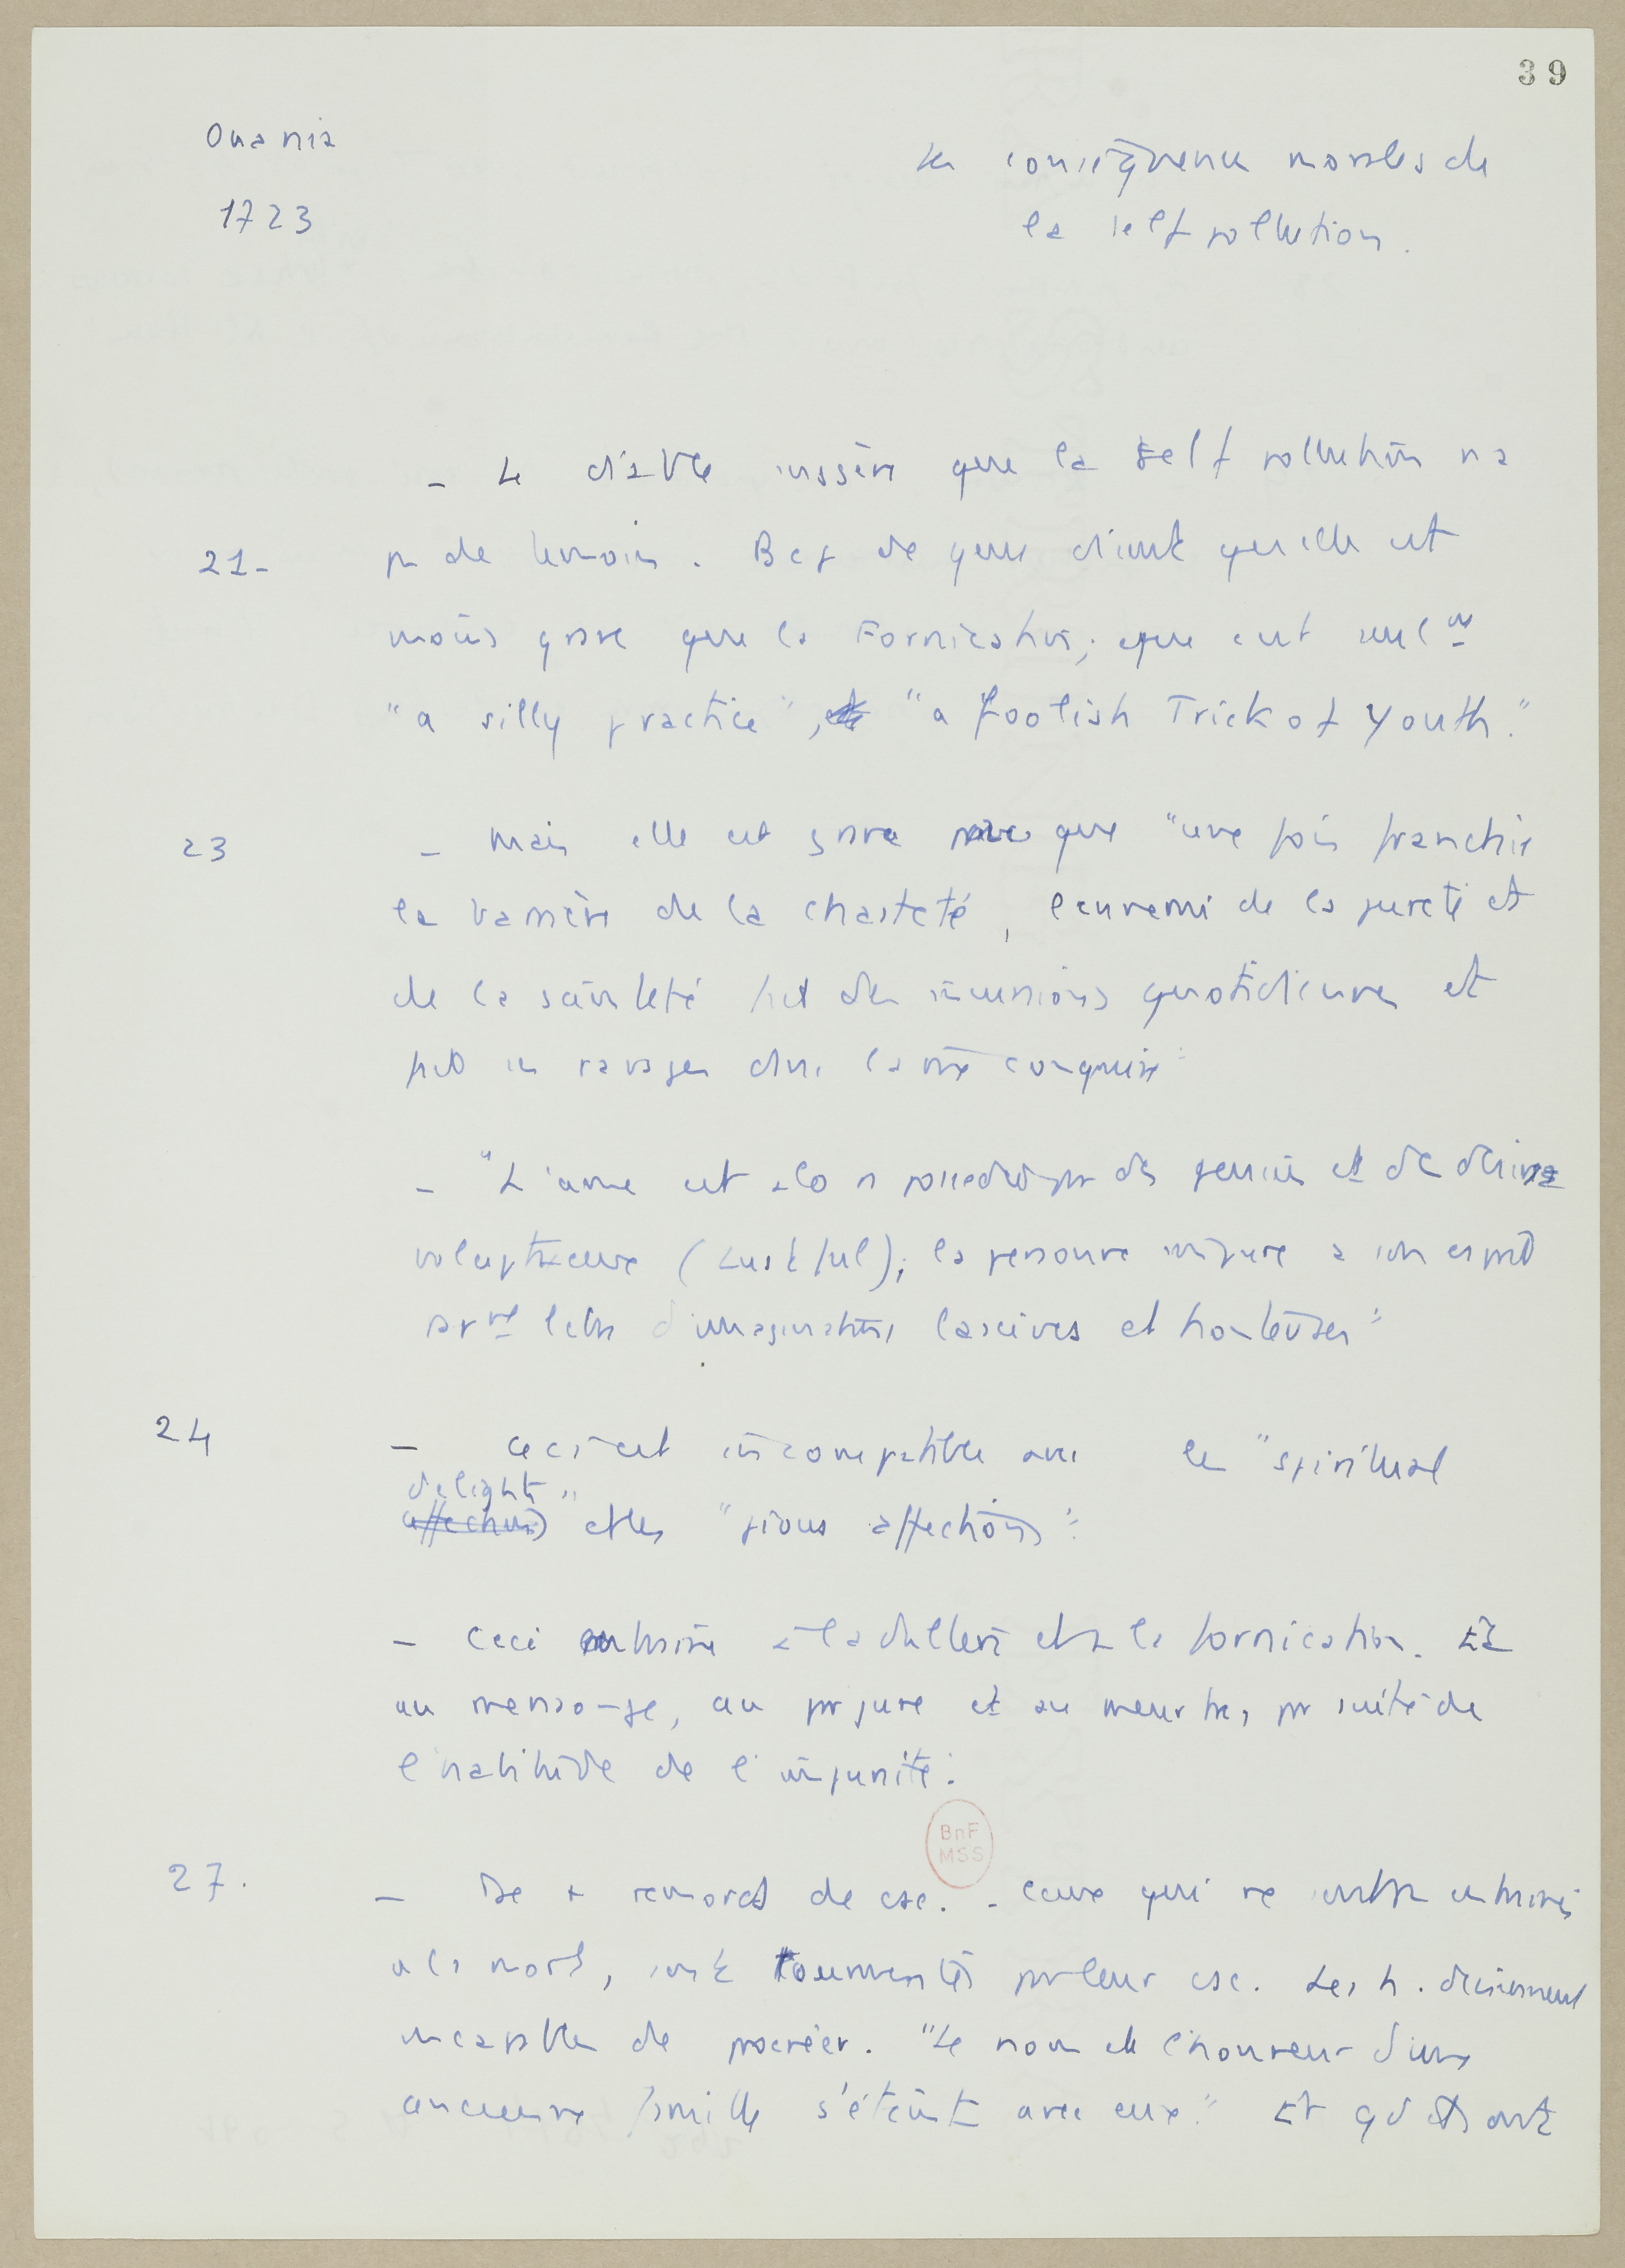 39
Onania
1723
les conséquences morales de
la self pollution.
- Le diable suggère que la self pollution n'a
21- pas de témoins. Bcp de gens disent qu'elle est
moins grave que la Fornication; que c'est seulnt
"a silly practice", "a foolish Trick of Youth."
23 - Mais elle est grave parce que "une fois franchie
la barrière de la chasteté, l'ennemi de la pureté et
de la sainteté fait des incursions quotidiennes et
fait des ravages dans la conquise"
- "L'ame est alors possédée par des pensées et des désirs
voluptueux (Lustful); la personne impure a son esprit
d'imaginations lascives et honteuses"
24 - Ceci est incompatible avec les "spiritual
delights" et les "pious affections".
- Ceci entraîne à l'adultère et à la fornication. Et
au mensonge, au parjure et au meurtre, par suite de
l'habitude de l'impunité.
BnF
MSS
27. - De + remords de csc. - Ceux qui ne sont pas entraînés
à la mort, sont tourmentés par leur csc. Les h. deviennent
incapables de procréer. "Le nom et l'honneur d'une
ancienne famille s'éteint avec eux." Et qd ils ont